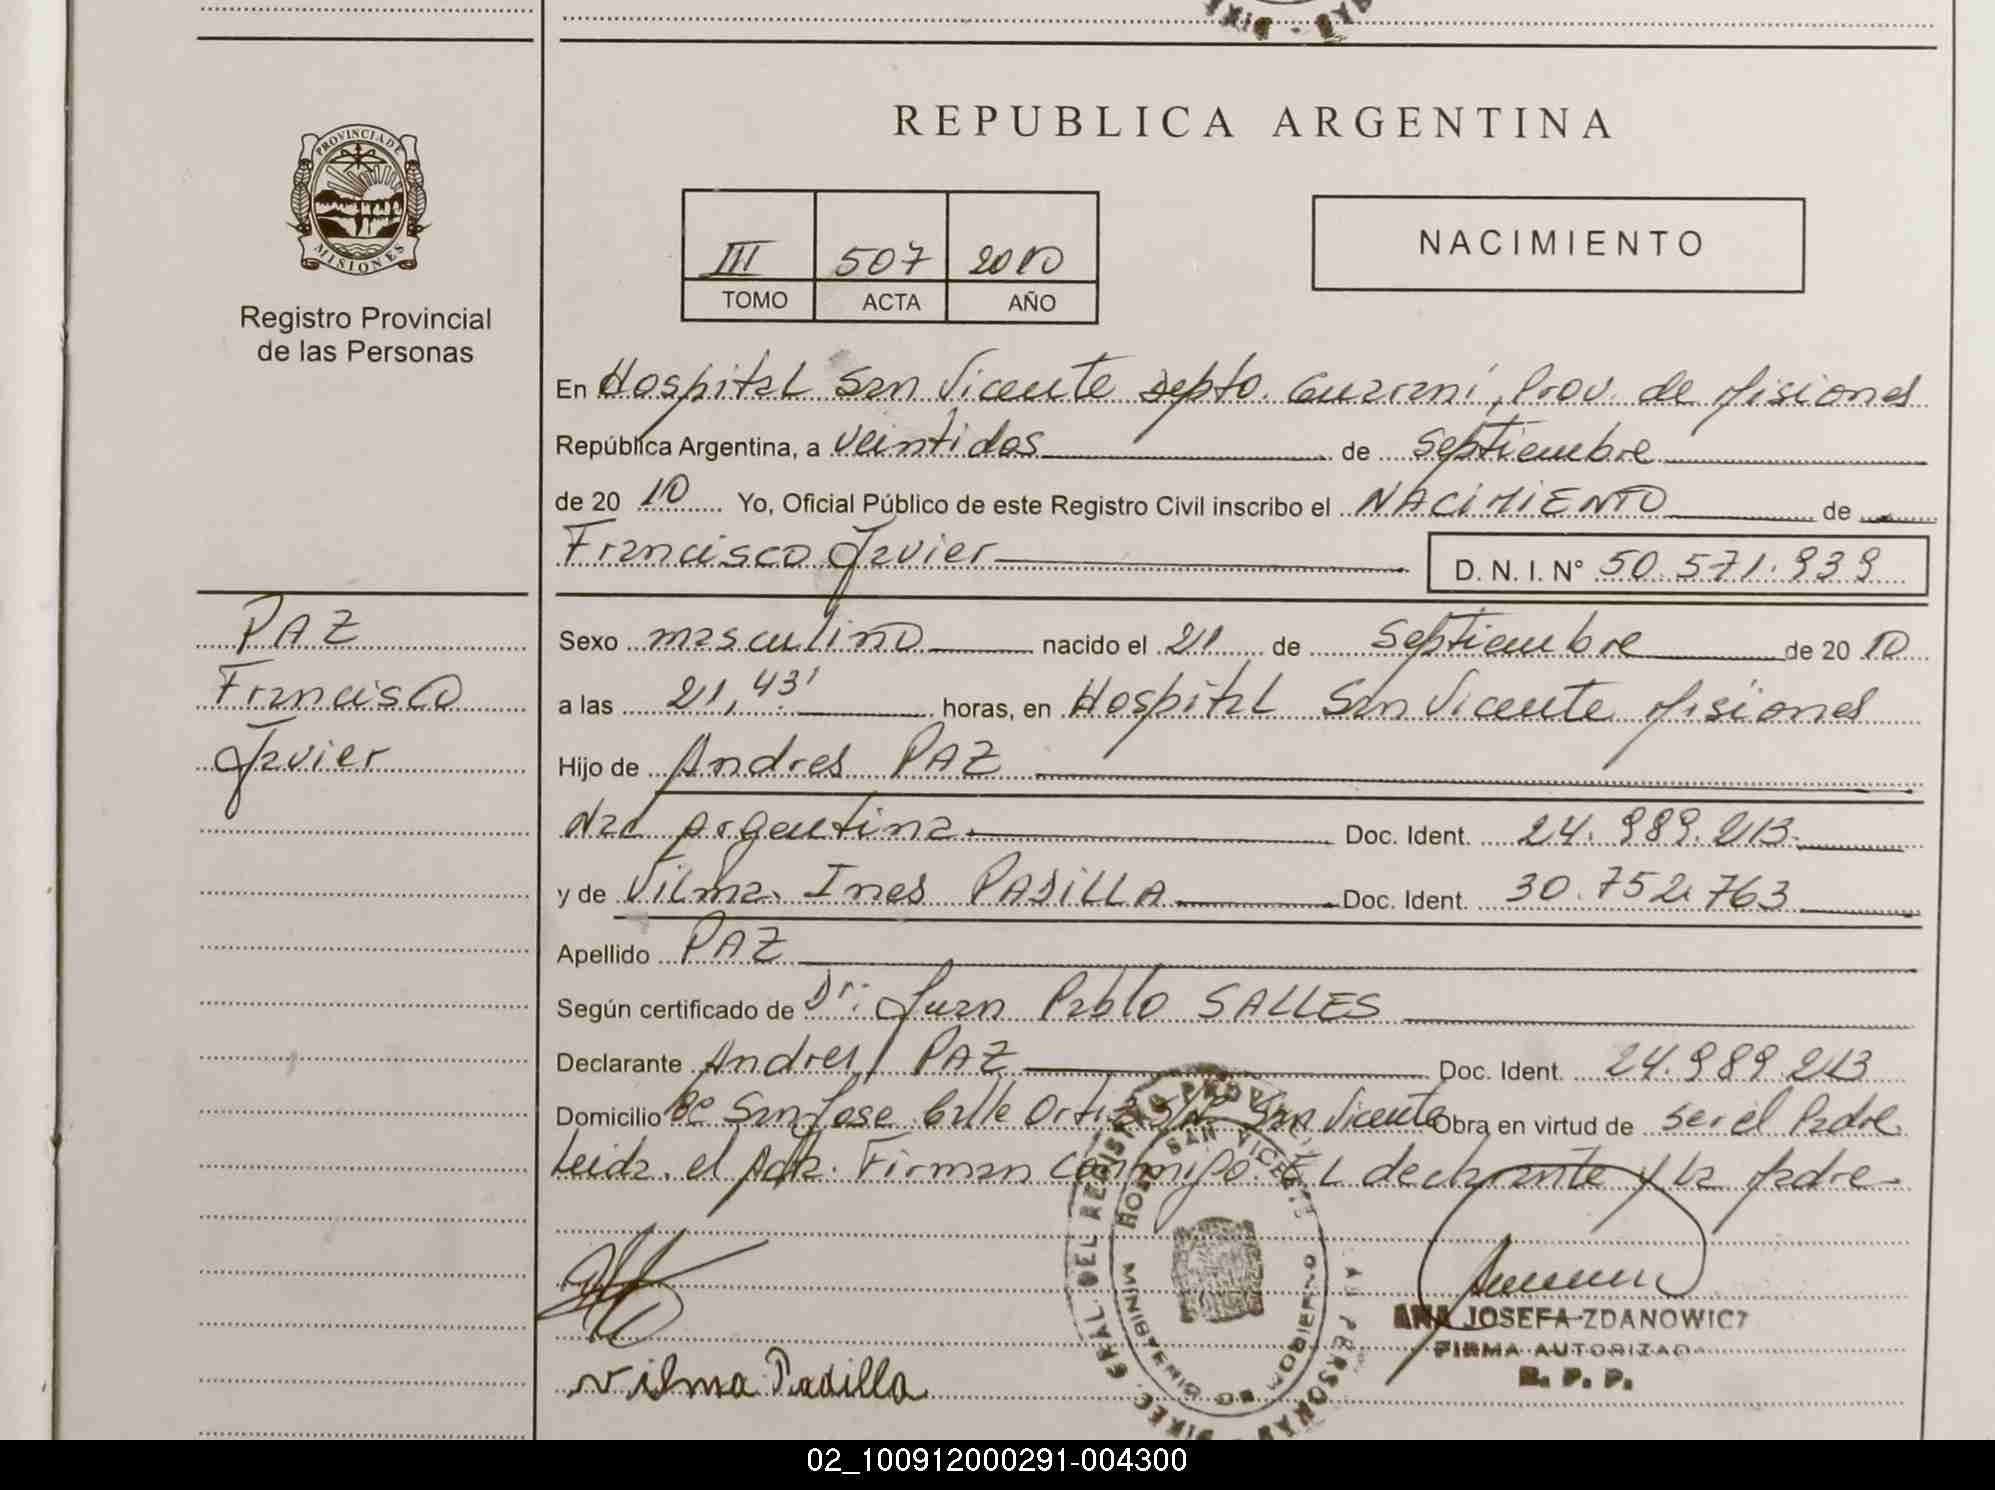 REPUBLICA ARGENTINA
PROVINCIA DE MISIONES
Registro Provincial
de las Personas
III 507 2010
TOMO ACTA AÑO
NACIMIENTO
En Hospital San Vicente Depto. Guarani, Prov. de Misiones
República Argentina, a veintidos de Septiembre
de 20 10 Yo, Oficial Público de este Registro Civil inscribo el NACIMIENTO de
Francisco Javier D. N. I. N° 50.571.939
PAZ
Francisco
Javier
Sexo masculino nacido el 21 de Septiembre de 20 10
a las 21,43' horas, en Hospital San Vicente Misiones
Hijo de Andres PAZ
Nac Argentina Doc. Ident. 24.989.213
y de Vilma Ines PADILLA Doc. Ident. 30.752.763
Apellido PAZ
Según certificado de Dr: Juan Pablo SALLES
Declarante Andres PAZ Doc. Ident. 24.989.213
Domicilio Bº San Jose Calle Ortiz S/Nº San Vicente Obra en virtud de ser el Padre
Leida el Acta. Firman conmigo. El declarante y la Madre.
DIREC. GRAL. DEL REGISTRO PROV. PERSONAS
HOSP. SAN VICENTE
MINISTERIO DE GOBIERNO
ANA JOSEFA ZDANOWICZ
FIRMA AUTORIZADA
R. P. P.
Vilma Padilla
02_100912000291-004300